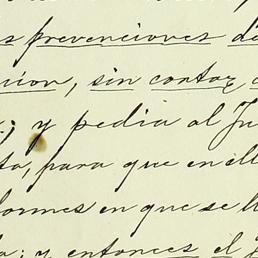 s prevenciones d
nion, sin contar
; y pedia al Ju
to, para que en ell
formes en que se h
; y entonces el J